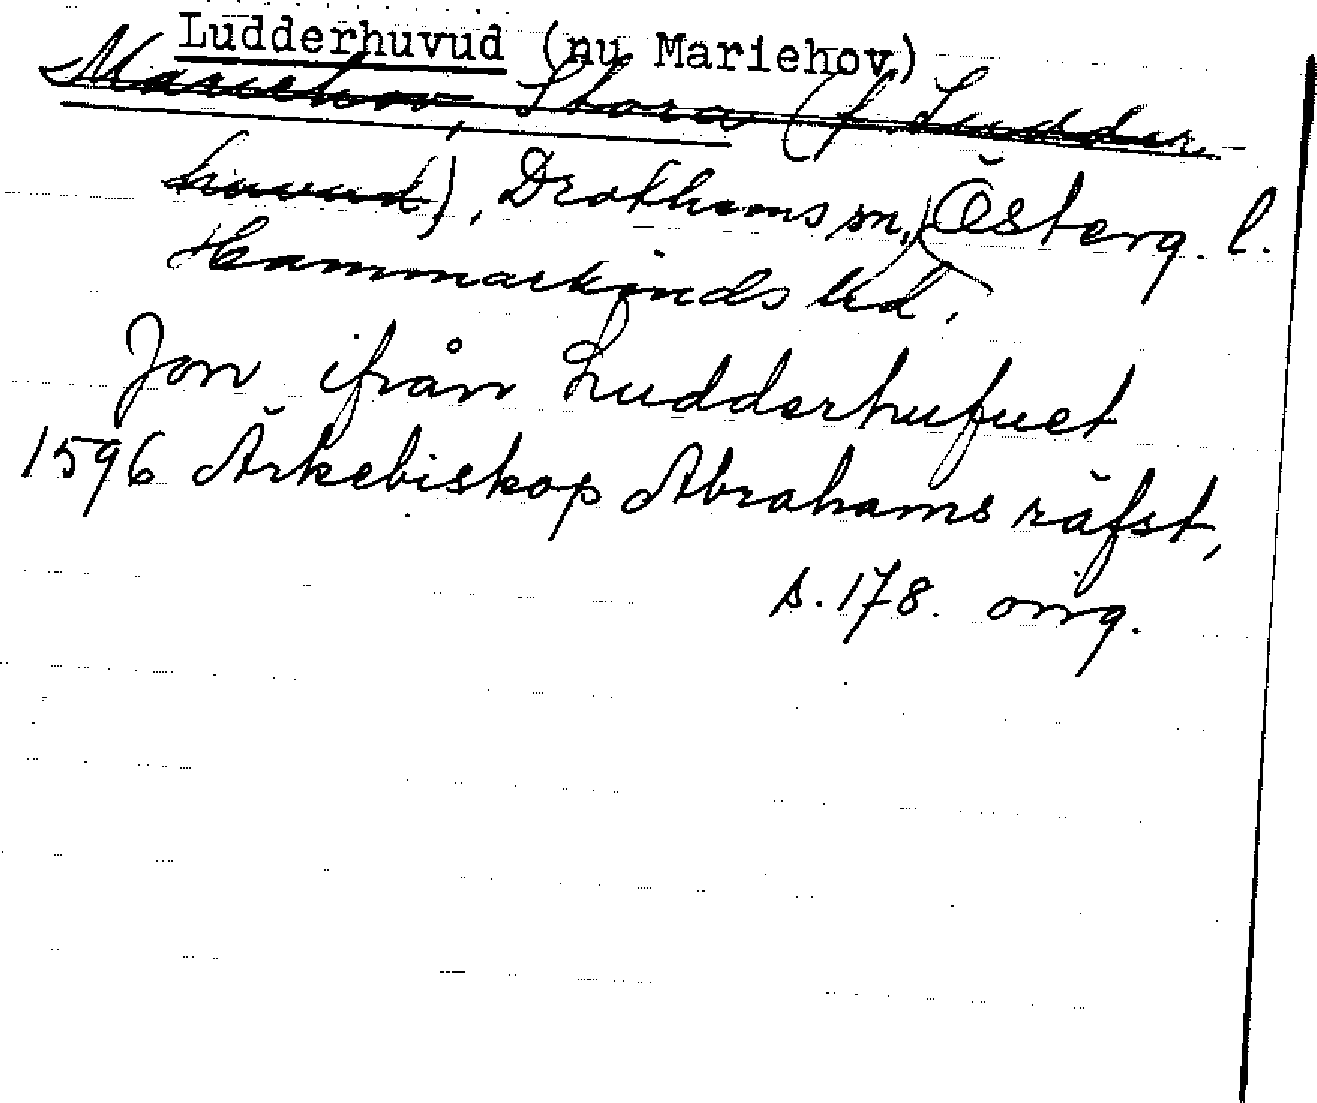 Ludderhuvud (nu Mariehov)
Mariehov, Stora (f. Ludder
huvud), Drothems sn, Österg. l.
Hammarkinds hd.
Jon ifrån Ludderhufuet
1596 Ärkebiskop Abrahams räfst,
s. 178. orig.